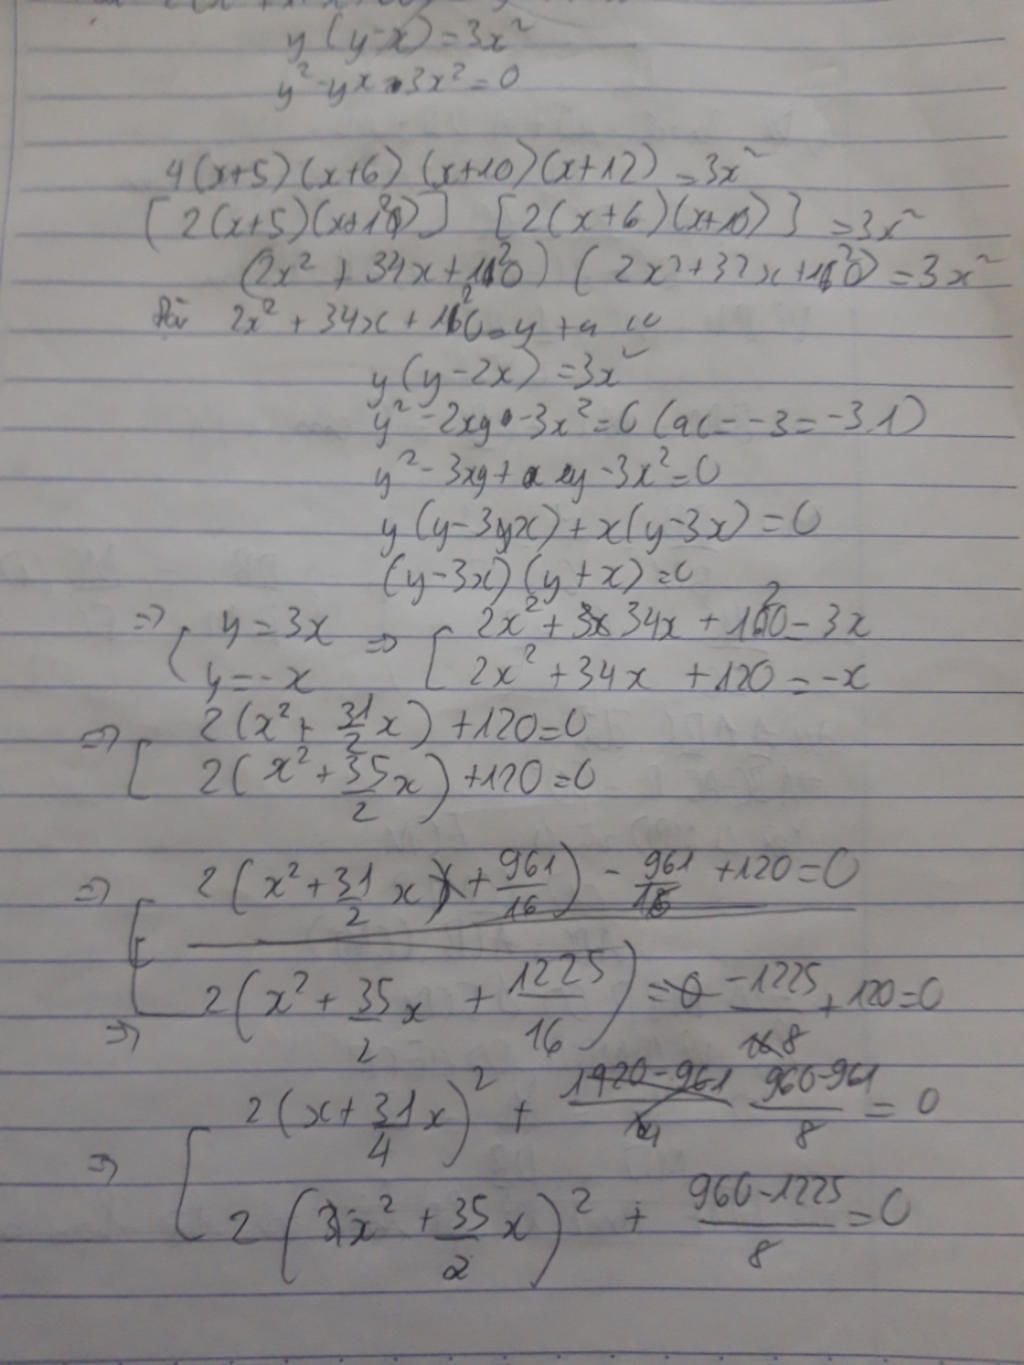 y(y-x)=3x²
y²-yx-3x²=0
4(x+5)(x+6)(x+10)(x+12)=3x²
[2(x+5)(x+12)] [2(x+6)(x+10)]=3x²
(2x²+34x+120)(2x²+32x+120)=3x²
2x²+34x+120=y
y(y-2x)=3x²
y²-2xy-3x²=0 (ac=-3=-3.1)
y²-3xy+xy-3x²=0
y(y-3x)+x(y-3x)=0
(y-3x)(y+x)=0
=> [ y=3x => [ 2x²+34x+120=3x
y=-x 2x²+34x+120=-x
=> [ 2(x²+31/2x)+120=0
2(x²+35/2x)+120=0
=> [ 2(x²+31/2x+961/16)-961/8+120=0
=> 2(x²+35/2x+1225/16)-1225/8+120=0
=> [ 2(x+31/4x)²+960-961/8=0
2(x²+35/2x)²+960-1225/8=0